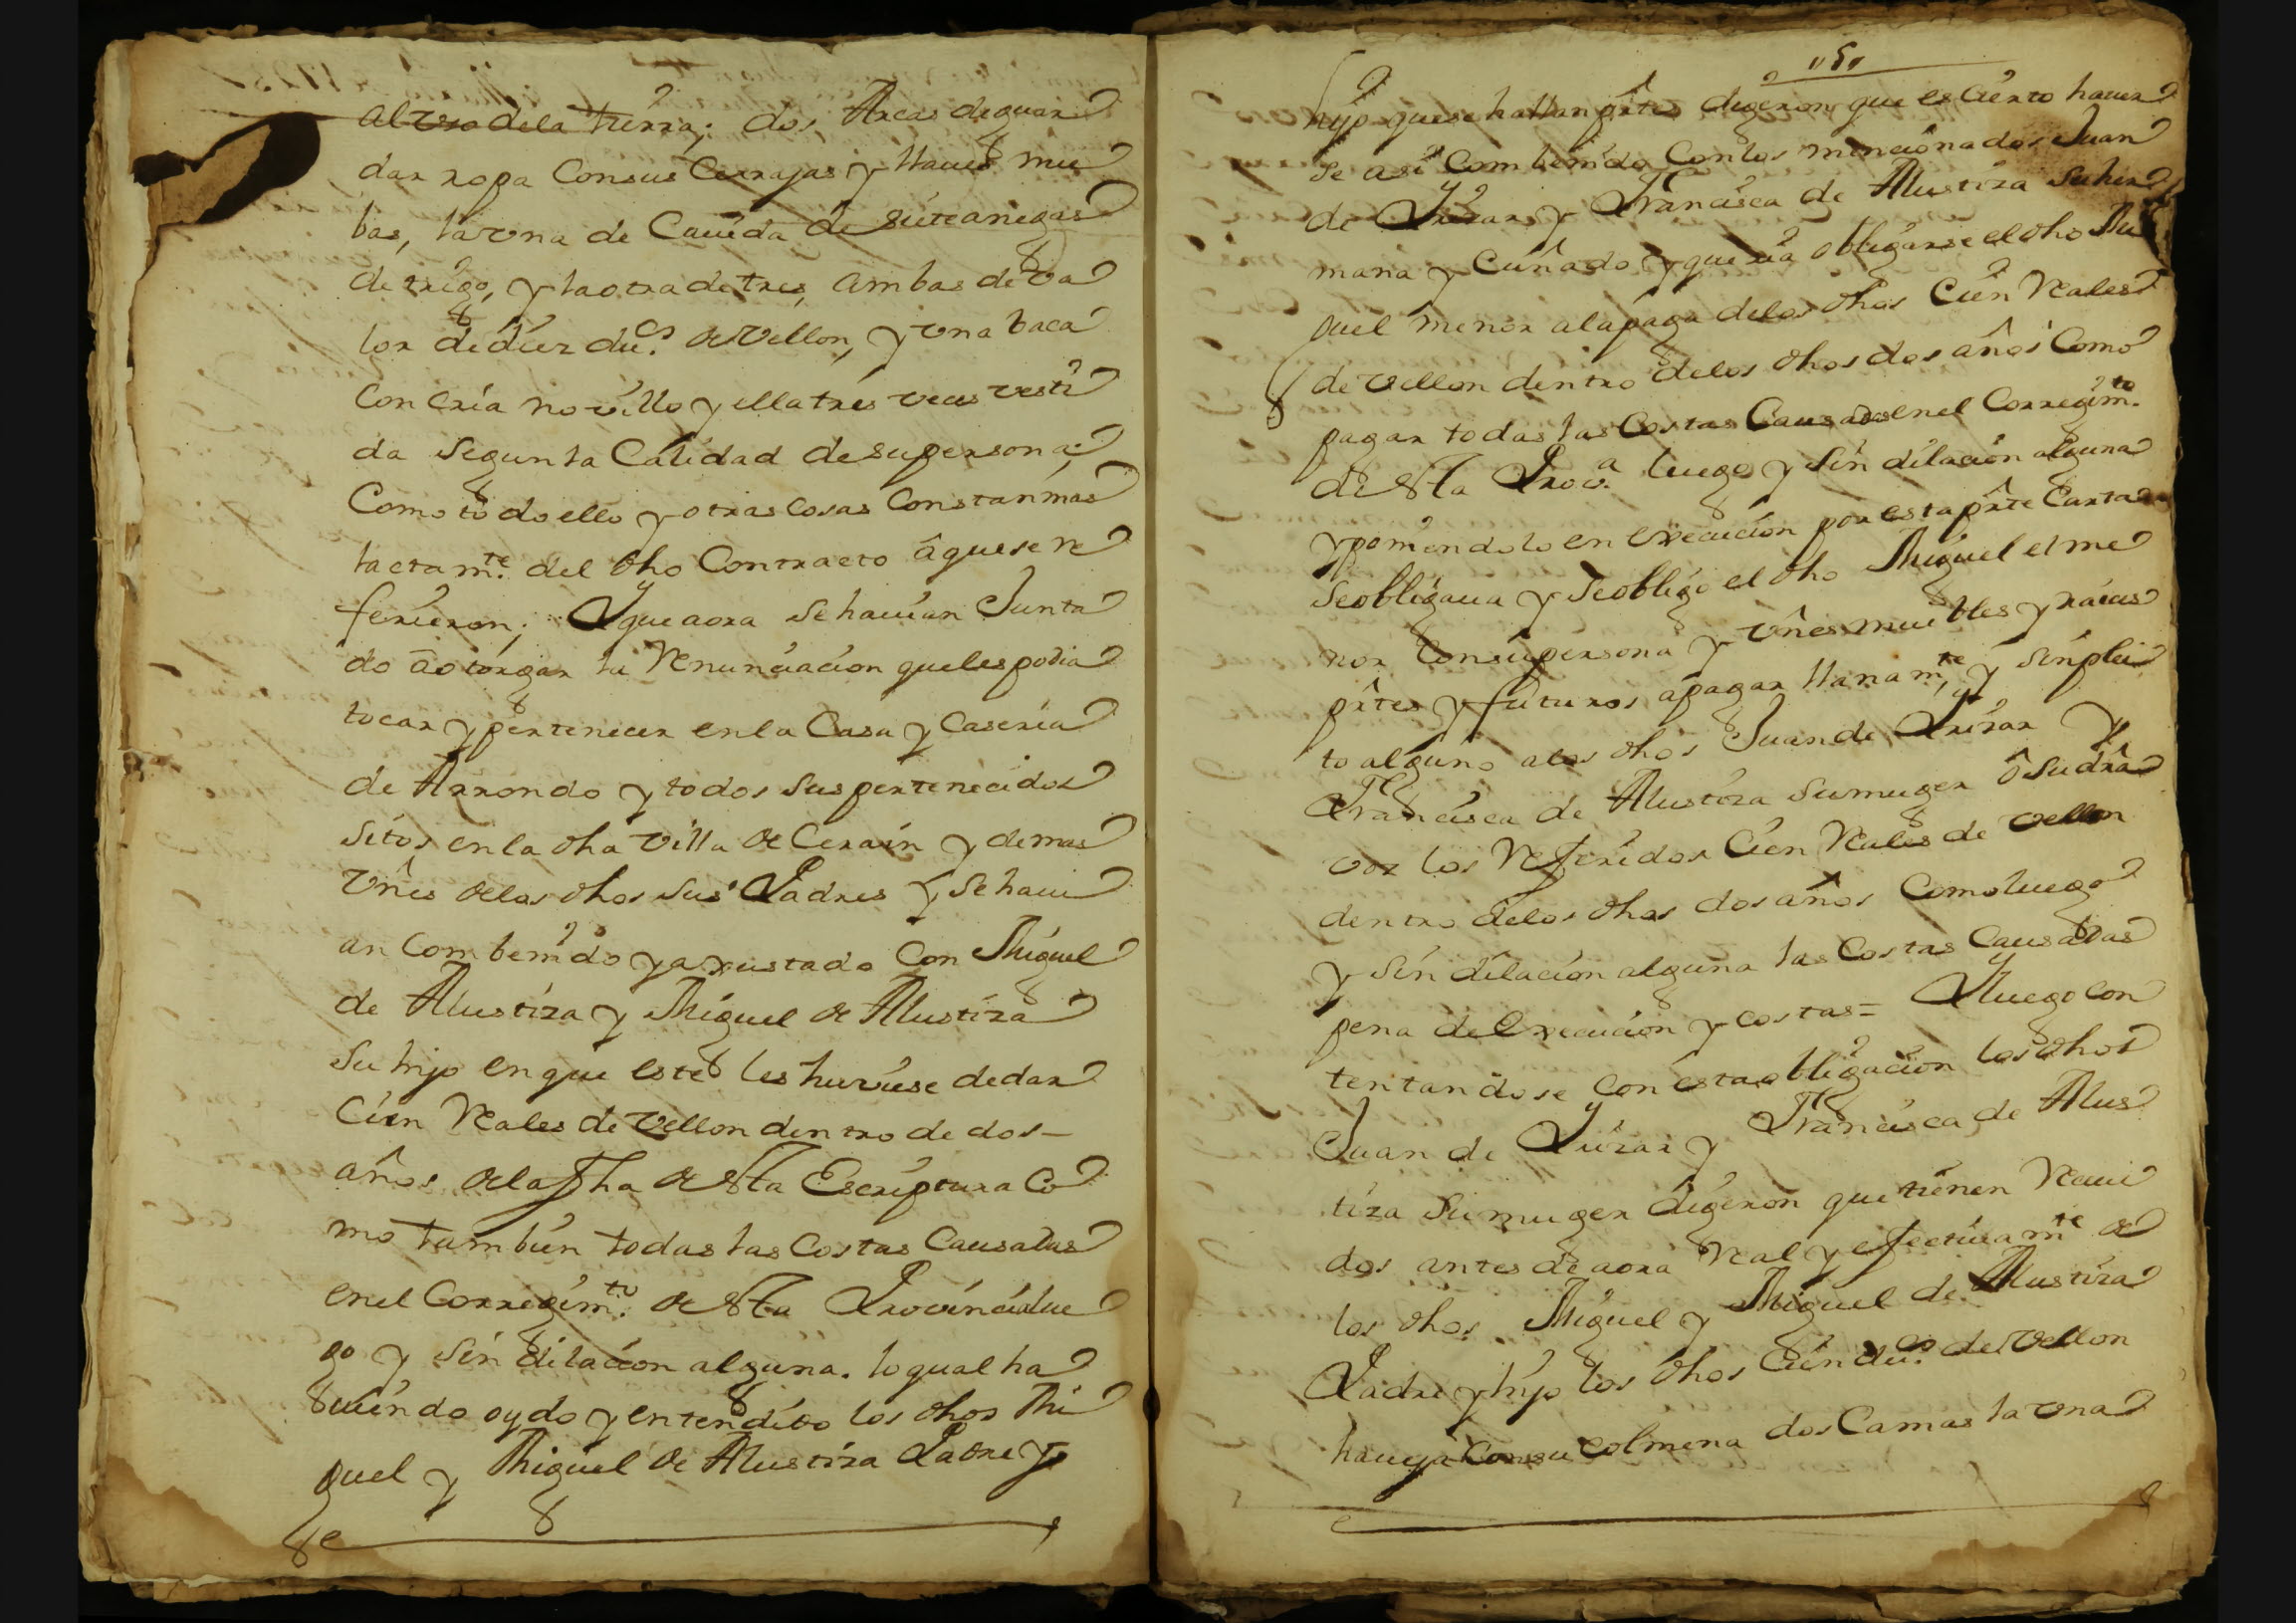 al uso dela tierra; dos Arcas de guar
dar ropa Con sus Cerrajas y llaues nue
bas, la vna de Cauida de siete anegas
de trigo, y la otra de tres, ambas de va
lor de diez du.os de vellon, y vna baca
Con cria novillo y ella tres veces vesti
da segun la Calidad de su persona,
Como todo ello y otras cosas Constan mas
lactam.te del dho Contracto â que se re
ferieron; Y que aora se hauian Junta
do âotorgar la Renunciacion que les podia
tocar y pertenecer en la Casa y Caseria
de Arrondo y todos sus pertenecidos
sitos en la dha villa de Cerain y demas
vnês delos dhos sus Padres y se haui
an Combenido y axustado Con Miguel
de Alustiza y Miguel de Alustiza
su hijo en que este les huviese de dar
Cien Reales de vellon dentro de dos
años dela fha de esta Escriptura Co
mo tambien todas las Costas Causadas
en el Corregim.to de esta Provincia lue
go y sin dilacion alguna. lo qual ha
uiendo oydo y entendido los dhos Mi
guel y Miguel de Alustiza Padre y
151
hijo que se hallan prêtes digeron que es Cierto hauer
se asi Combenido Con los mencionados Juan
de Yrizar y Francisca de Alustiza su her
mana y Cuñado y queria obligarse el dho Mi
guel menor ala paga delos dhos Cien Reales
de vellon dentro delos dhos dos años Como
pagar todas las Costas Causadas en el Corregim.to
de esta Prov.a luego y sin dilacion alguna
y poniendolo en execucion por esta prête Carta
se obligaua y se obligo el dho Miguel el me
nor Con su persona y vnês muebles y raices
prêtes y futuros apagar llanam.te y sin plei
to alguno alos dhos Juan de Yrizar y
Francisca de Alustiza su muger ô su drâ
voz los Referidos Cien Reales de vellon
dentro delos dhos dos años Como luego
y sin dilacion alguna las Costas Causadas
pena de execucion y costas= Y luego con
tentandose con esta obligacion los dhos
Juan de Yrizar y Francisca de Alus
tiza su muger digeron que tienen Reciui
dos antes de aora Real y efectiuam.te de
los dhos Miguel y Miguel de Alustiza
Padre y hijo los dhos Cien du.os de vellon
haueja Con su colmena dos Camas la vna